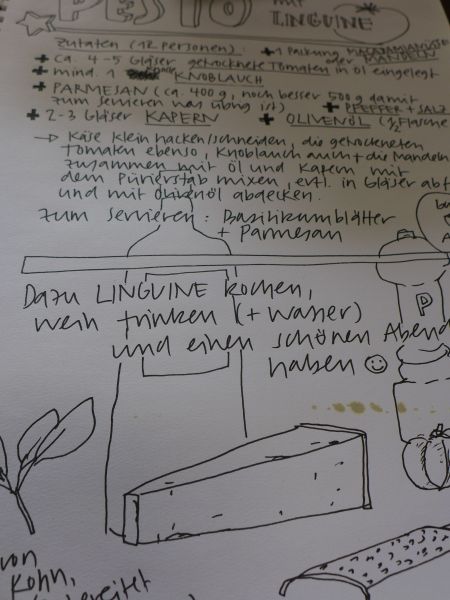 PESTO mit
LINGUINE
Zutaten (12 Personen): + 1 Packung MACADAMIANÜSSE
oder MANDELN
+ ca. 4-5 Gläser getrocknete Tomaten in Öl eingelegt
+ mind. 1 KNOBLAUCH
+ PARMESAN (ca. 400 g, noch besser 500 g damit
zum Servieren was übrig ist) + PFEFFER + SALZ
+ 2-3 Gläser KAPERN + OLIVENÖL (1/2 Flasche
→ Käse klein hacken/schneiden, die getrockneten
Tomaten ebenso, Knoblauch auch + die Mandeln
zusammen mit Öl und Kapern mit
dem Pürierstab mixen, evtl. in Gläser abf
und mit Olivenöl abdecken.
Zum Servieren: Basilikumblätter
+ Parmesan
Dazu LINGUINE kochen,
wein trinken (+ Wasser)
und einen schönen Abend
haben ☺
P
von
Kohn,
bereitet